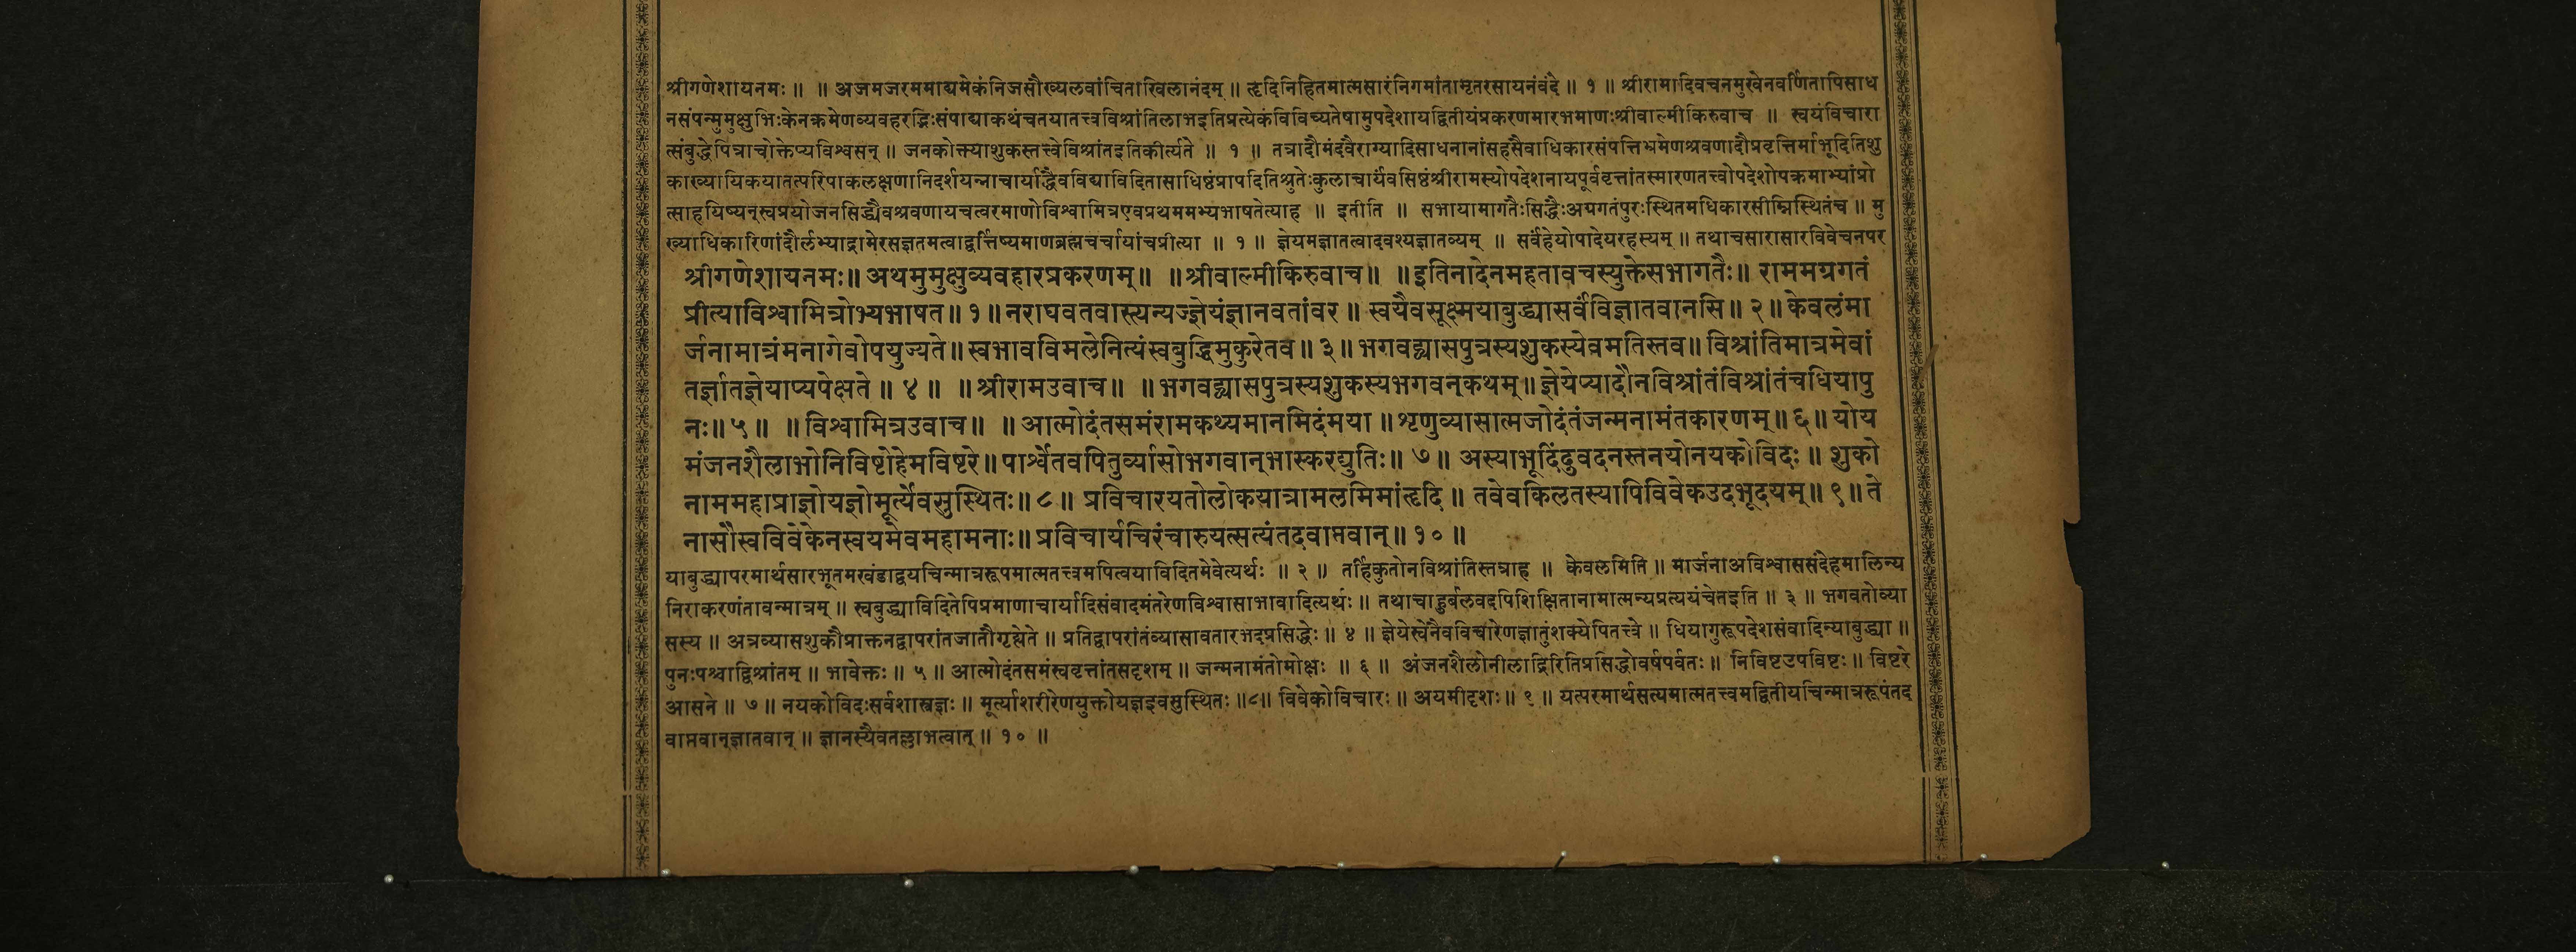 श्रीगणेशायनमः ॥ ॥ अजमजरममाद्यमेकंनिजसौख्यलवांचिताखिलानंदम् ॥ हृदिनिहितमात्मसारंनिगमांतामृतरसायनंवंदे ॥ १ ॥ श्रीरामादिवचनमुखेनवर्णितापिसाध
नसंपन्मुमुक्षुभिःकेनक्रमेणव्यवहरद्भिःसंपाद्याकथंचतयातत्त्वविश्रांतिलाभइतिप्रत्येकंविविच्यतेषामुपदेशायद्वितीयंप्रकरणमारभमाणःश्रीवाल्मीकिरुवाच ॥ स्वयंविचारा
त्संबुद्धेपित्राचोक्तेप्यविश्वसन् ॥ जनकोक्त्याशुकस्तत्त्वेविश्रांतइतिकीर्त्यते ॥ १ ॥ तत्रादौमंदवैराग्यादिसाधनानांसहसैवाधिकारसंपत्तिभ्रमेणश्रवणादौप्रवृत्तिर्माभूदितिशु
काख्यायिकयातत्परिपाकलक्षणानिदर्शयन्नाचार्याद्धैवविद्याविदितासाधिष्ठंप्रापदितिश्रुतेःकुलाचार्यंवसिष्ठंश्रीरामस्योपदेशनायपूर्ववृत्तांतस्मारणतत्त्वोपदेशोपक्रमाभ्यांप्रो
त्साहयिष्यन्स्वप्रयोजनसिद्ध्यैवश्रवणायचत्वरमाणोविश्वामित्रएवप्रथममभ्यभाषतेत्याह ॥ इतीति ॥ सभायामागतैःसिद्धैःअग्रगतंपुरःस्थितमधिकारसीम्निस्थितंच ॥ मु
ख्याधिकारिणांदौर्लभ्याद्रामेरसज्ञतमत्वाद्वर्त्तिष्यमाणब्रह्मचर्चायांचप्रीत्या ॥ १ ॥ ज्ञेयमज्ञातत्वादवश्यज्ञातव्यम् ॥ सर्वंहेयोपादेयरहस्यम् ॥ तथाचसारासारविवेचनपर
श्रीगणेशायनमः॥ अथमुमुक्षुव्यवहारप्रकरणम्॥ ॥ श्रीवाल्मीकिरुवाच॥ ॥ इतिनादेनमहतावचस्युक्तेसभागतैः॥ राममग्रगतं
प्रीत्याविश्वामित्रोभ्यभाषत॥ १॥ नराघवतवास्त्यन्यज्ज्ञेयंज्ञानवतांवर॥ स्वयैवसूक्ष्मयाबुद्ध्यासर्वंविज्ञातवानसि॥ २॥ केवलंमा
र्जनामात्रंमनागेवोपयुज्यते॥ स्वभावविमलेनित्यंस्वबुद्धिमुकुरेतव॥ ३॥ भगवद्व्यासपुत्रस्यशुकस्येवमतिस्तव॥ विश्रांतिमात्रमेवां
तर्ज्ञातज्ञेयाप्यपेक्षते॥ ४॥ ॥ श्रीरामउवाच॥ ॥ भगवद्व्यासपुत्रस्यशुकस्यभगवन्कथम्॥ ज्ञेयेप्यादौनविश्रांतंविश्रांतंचधियापु
नः॥ ५॥ ॥ विश्वामित्रउवाच॥ ॥ आत्मोदंतसमंरामकथ्यमानमिदंमया॥ शृणुव्यासात्मजोदंतंजन्मनामंतकारणम्॥ ६॥ योय
मंजनशैलाभोनिविष्टोहेमविष्टरे॥ पार्श्वेतवपितुर्व्यासोभगवान्भास्करद्युतिः॥ ७॥ अस्याभूदिंदुवदनस्तनयोनयकोविदः॥ शुको
नाममहाप्राज्ञोयज्ञोमूर्त्येवसुस्थितः॥ ८॥ प्रविचारयतोलोकयात्रामलमिमांहृदि॥ तवेवकिलतस्यापिविवेकउदभूदयम्॥ ९॥ ते
नासौस्वविवेकेनस्वयमेवमहामनाः॥ प्रविचार्यचिरंचारुयत्सत्यंतदवाप्तवान्॥ १०॥
याबुद्ध्यापरमार्थसारभूतमखंडाद्वयचिन्मात्ररूपमात्मतत्त्वमपित्वयाविदितमेवेत्यर्थः ॥ २ ॥ तर्हिकुतोनविश्रांतिस्तत्राह ॥ केवलमिति ॥ मार्जनाअविश्वाससंदेहमालिन्य
निराकरणंतावन्मात्रम् ॥ स्वबुद्ध्याविदितेपिप्रमाणाचार्यादिसंवादमंतरेणविश्वासाभावादित्यर्थः ॥ तथाचाहुर्बलवदपिशिक्षितानामात्मन्यप्रत्ययंचेतइति ॥ ३ ॥ भगवतोव्या
सस्य ॥ अत्रव्यासशुकौप्राक्तनद्वापरांतजातौगृह्येते ॥ प्रतिद्वापरांतंव्यासावतारभेदप्रसिद्धेः ॥ ४ ॥ ज्ञेयेस्वेनैवविचारेणज्ञातुंशक्येपितत्त्वे ॥ धियागुरूपदेशसंवादिन्याबुद्ध्या ॥
पुनःपश्चाद्विश्रांतम् ॥ भावेक्तः ॥ ५ ॥ आत्मोदंतसमंस्ववृत्तांतसदृशम् ॥ जन्मनामंतोमोक्षः ॥ ६ ॥ अंजनशैलोनीलाद्रिरितिप्रसिद्धोवर्षपर्वतः ॥ निविष्टउपविष्टः ॥ विष्टरे
आसने ॥ ७ ॥ नयकोविदःसर्वशास्त्रज्ञः ॥ मूर्त्याशरीरेणयुक्तोयज्ञइवसुस्थितः ॥८॥ विवेकोविचारः ॥ अयमीदृशः॥ ९ ॥ यत्परमार्थसत्यमात्मतत्त्वमद्वितीयचिन्मात्ररूपंतद
वाप्तवान्ज्ञातवान् ॥ ज्ञानस्यैवतल्लाभत्वात् ॥ १० ॥